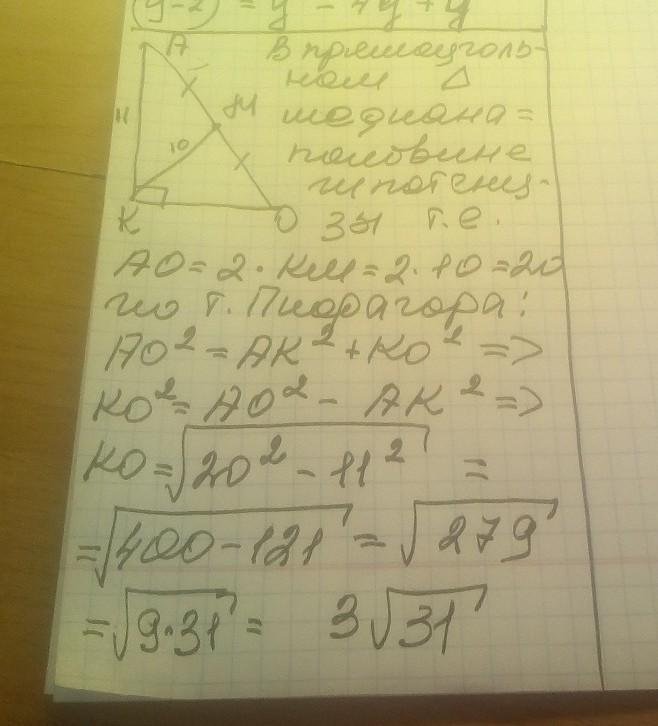 (y-2) = y² - 4y + y
A
В прямоуголь-
ном △
M
11
медиана =
10
половине
гипотену-
K
O
зы т.е.
AO = 2 · KM = 2 · 10 = 20
по т. Пифагора:
AO² = AK² + KO² =>
KO² = AO² - AK² =>
KO = √20² - 11² =
= √400 - 121 = √279
= √9·31 = 3√31